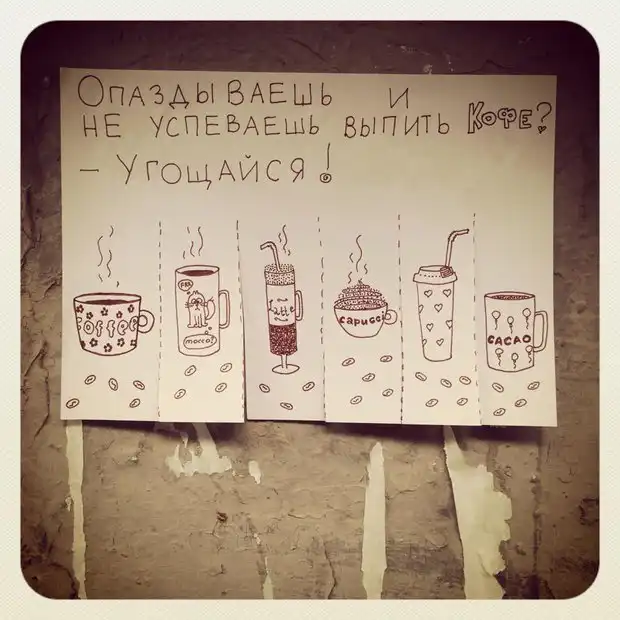 Опаздываешь и
не успеваешь выпить кофе?
– Угощайся!
Coffee
mocco?
Latte
capucci
CACAO